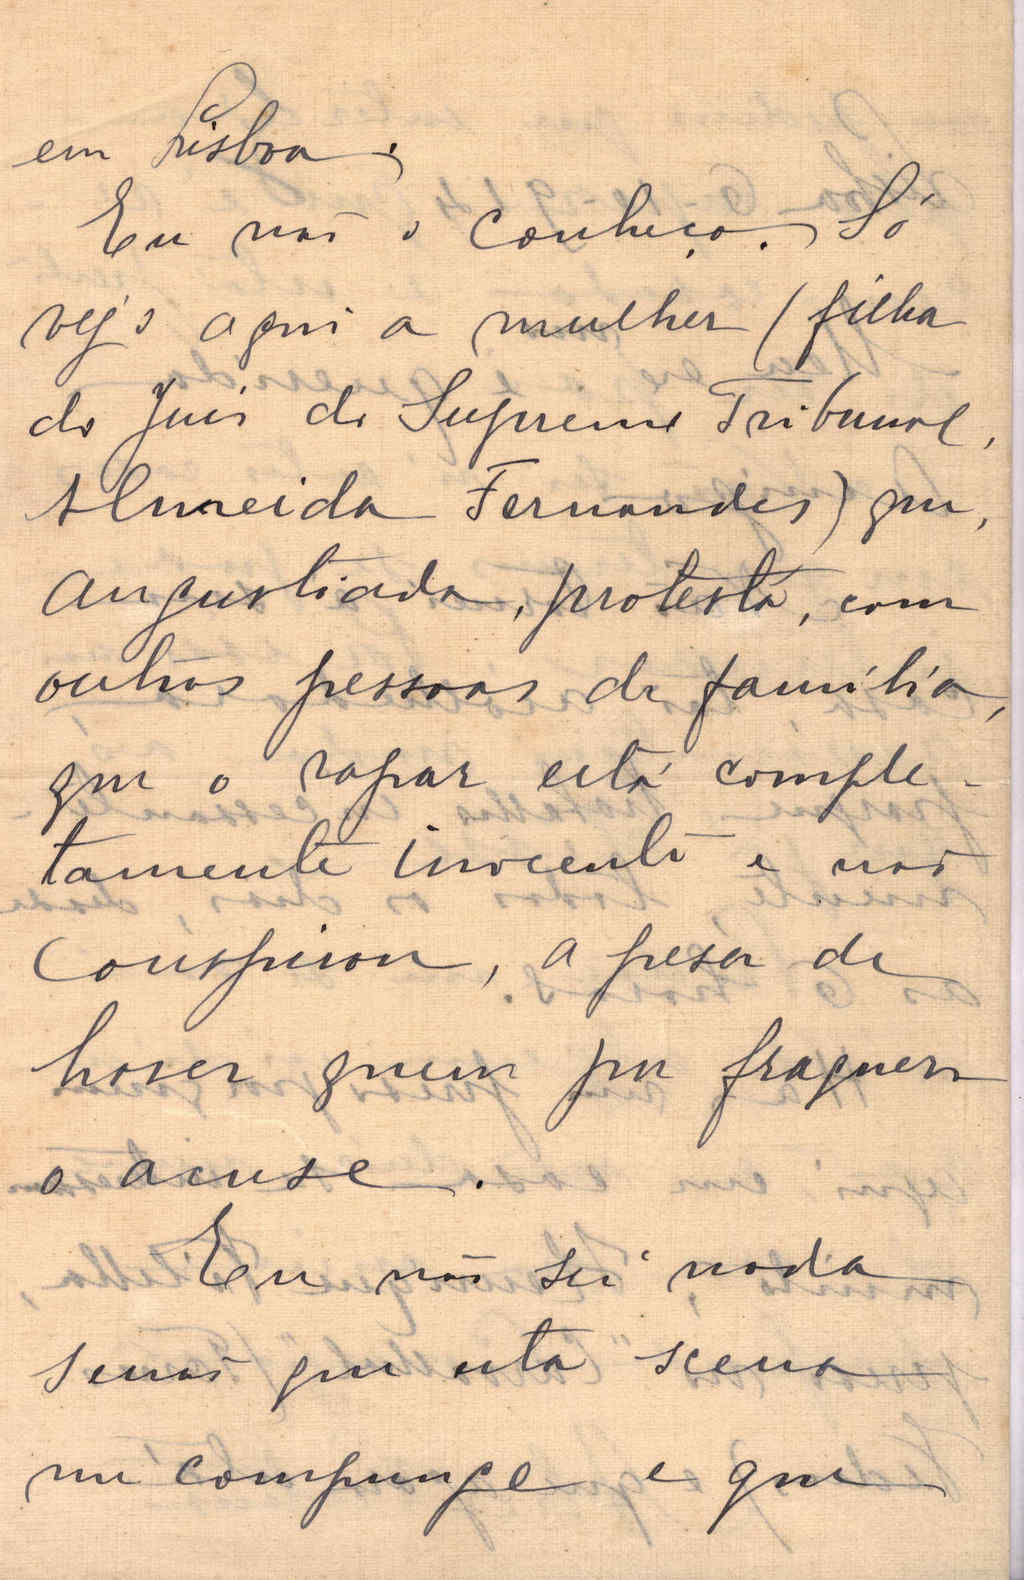 em Lisboa.
Eu não o conheço. Só
vejo aqui a mulher (filha
do Juis do Supremo Tribunal,
Almeida Fernandes) que,
angustiada, protesta, com
outras pessoas de família,
que o rapaz está comple-
tamente inocente e não
conspirou, apesar de
haver quem por fraqueza
o acuse.
Eu não sei nada
senão que esta scena
me compunge e que